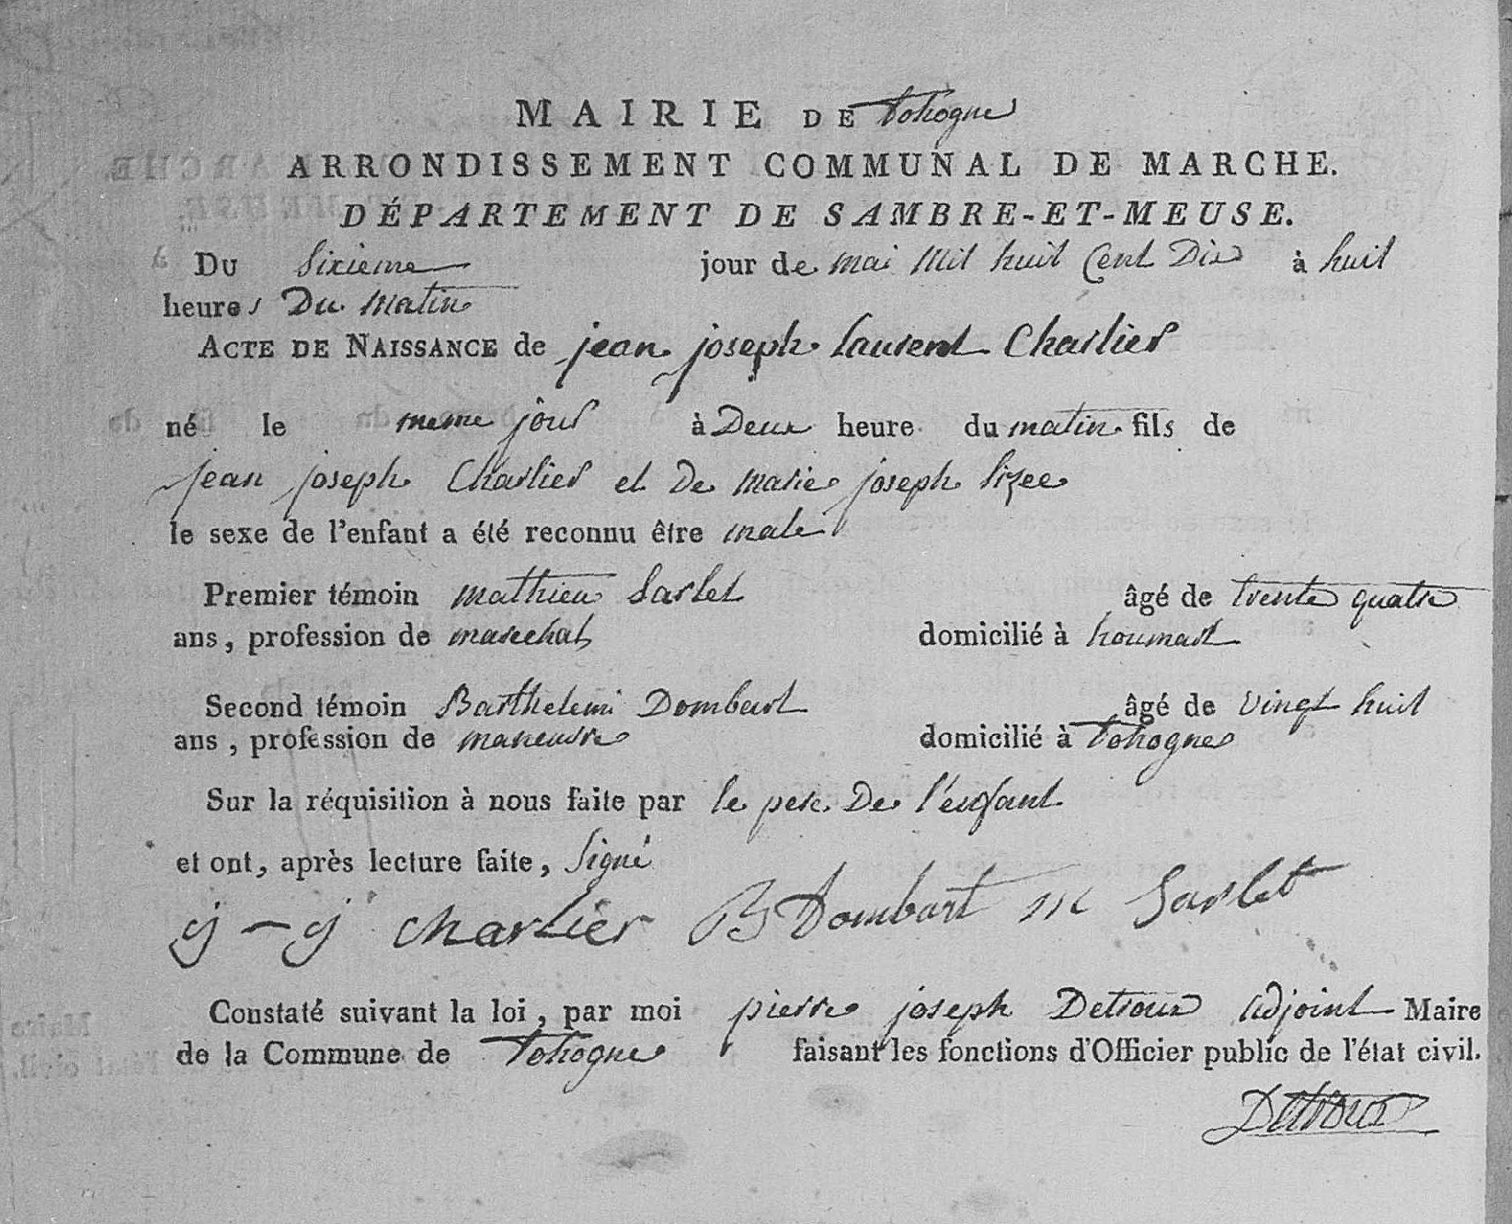 MAIRIE DE tohogne
ARRONDISSEMENT COMMUNAL DE MARCHE.
DÉPARTEMENT DE SAMBRE-ET-MEUSE.
Du Sixieme jour de mai Mil huit Cent Dix à huit
heures Du Matin
ACTE DE NAISSANCE de jean joseph laurent Charlier
né le meme jour à Deux heure du matin fils de
jean joseph Charlier et De marie joseph lizee
le sexe de l'enfant a été reconnu être male
Premier témoin mathieu Sarlet âgé de trente quatre
ans, profession de marechal domicilié à houmart
Second témoin Barthelemi Dombart âgé de vingt huit
ans, profession de maneuvre domicilié à tohogne
Sur la réquisition à nous faite par le pere De l'enfant
et ont, après lecture faite, Signé
j - j charlier B Dombart M Sarlet
Constaté suivant la loi, par moi pierre joseph Detroux adjoint Maire
de la Commune de Tohogne faisant les fonctions d'Officier public de l'état civil.
Detroux